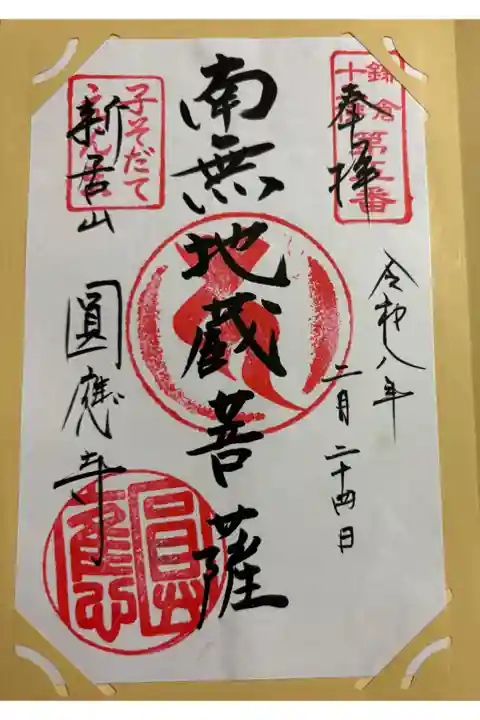 奉拝
鎌倉
十
第五番
令和八年
二月二十四日
南無地蔵菩薩
子そだて
えんま
新居山
圓應寺